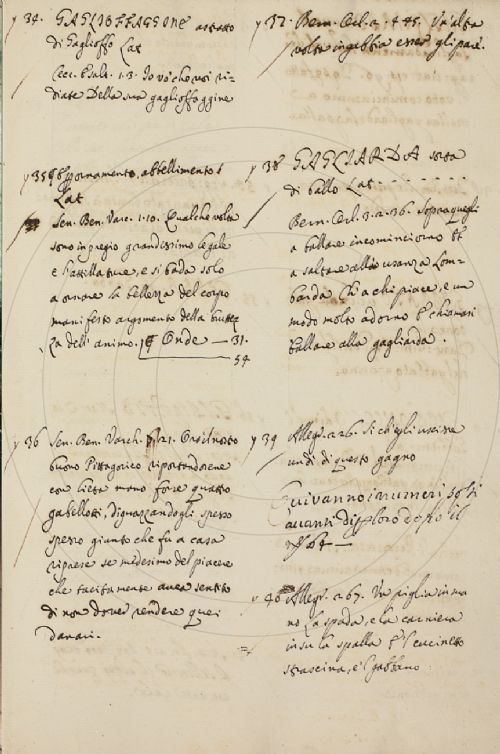 34. GAGLIOFFAGGINE astratto
di Gaglioffo Lat
Cecc. Esalt. 1.3. Io vo' che voi ri-
diate della sua gaglioffaggine
35 Per ornamento, abbellimento
Lat
Sen. Ben. Varc. 1.10. Qualche volta
sono in pregio grandissimo le gale
e l'attillature, e si bada solo
a ornare la bellezza del corpo
manifesto argomento della brutez
za dell'animo. Onde — 31.
54
36 Sen. Ben. Varch. 7.21. Ora il nostro
buono Pittagorico riportandosene
con lieta mano forse quattro
gabellotti, dignazzandogli spesso
spesso giunto che fu a casa
riprese se medesimo del piacere
che tacitamente avea sentito
di non dover rendere quei
danari.
37. Bern. Orl. 2. 4. 45. Un'altra
volta in gabbia esser gli pare.
38 GAGLIARDA sorta
di ballo Lat
Bern. Orl. 3. 2. 36. Sopra quegli
a ballare incominciorno
a saltare all'usanza Lom-
barda Ch'a chi piace, è un
modo molto adorno E' chiamasi
ballare alla gagliarda.
39 Allegr. 226. Si ch'egli uscisse
un dì di questo gagno
Qui vanno i numeri posti
avanti di
64 —
40 Allegr. 267. Un piglia in ma
no la spada, e la carniera
in su la spalla E'l
strascina, e'l gabbano.